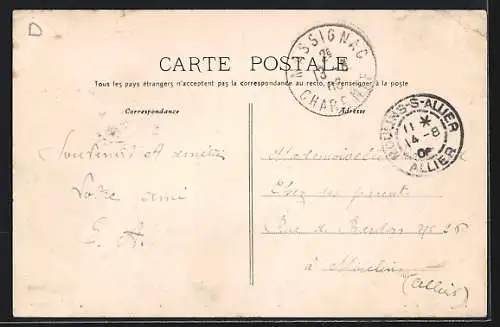 D
MASSIGNAC
CHARENTE
CARTE POSTALE
Tous les pays étrangers n'acceptent pas la correspondance au recto, se renseigner à la poste
Correspondance
Adresse
MOULINS-S-ALLIER
11 *
14 - 8
ALLIER
Souvenirs et amitiés
Votre ami
G. A.
Mademoiselle
Chez ses parents
Rue de
à Moulins
(Allier)